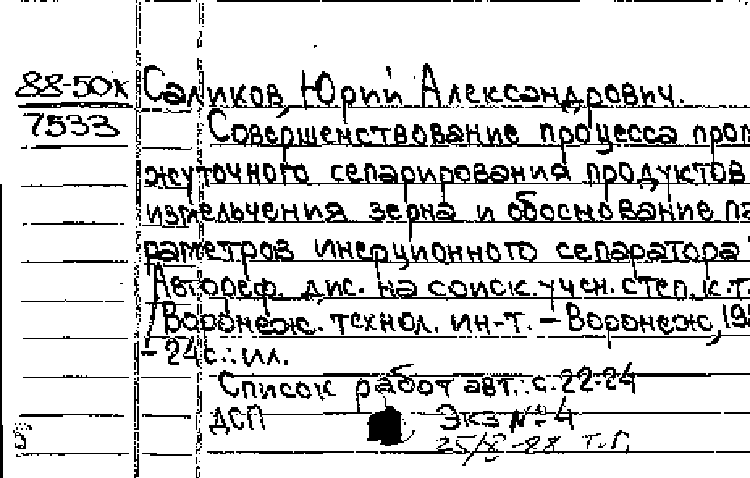 88-50к Саликов, Юрий Александрович.
7533 Совершенствование процесса пром
жуточного сепарирования продуктов
измельчения зерна и обоснование па
раметров инерционного сепаратора
Автореф. дис. на соиск. учен. степ. к.т.
/Воронеж. технол. ин-т. - Воронеж, 19
- 24 с.: ил.
Список работ авт.: с. 22-24
ДСП Экз № 4
25/X-88 т.П.